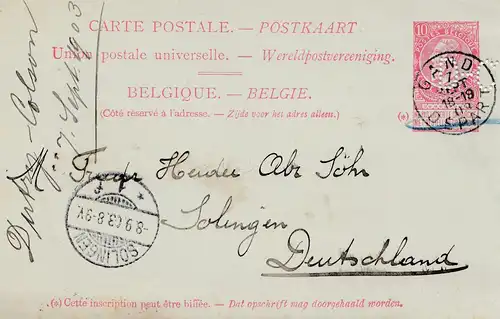 CARTE POSTALE. — POSTKAART
Union postale universelle. — Wereldpostvereeniging.
BELGIQUE. — BELGIE.
(Côté réservé à l'adresse. — Zijde voor het adres alleen.)
(*)
10
7. Sept. 1903
Colson
Fredr Herder Abr Söhn
Solingen
Deutschland
SOLINGEN
-8.9.03.8-9V.
GAND
SEPT
18-19
(*) Cette inscription peut être biffée. — Dat opschrift mag doorgehaald worden.